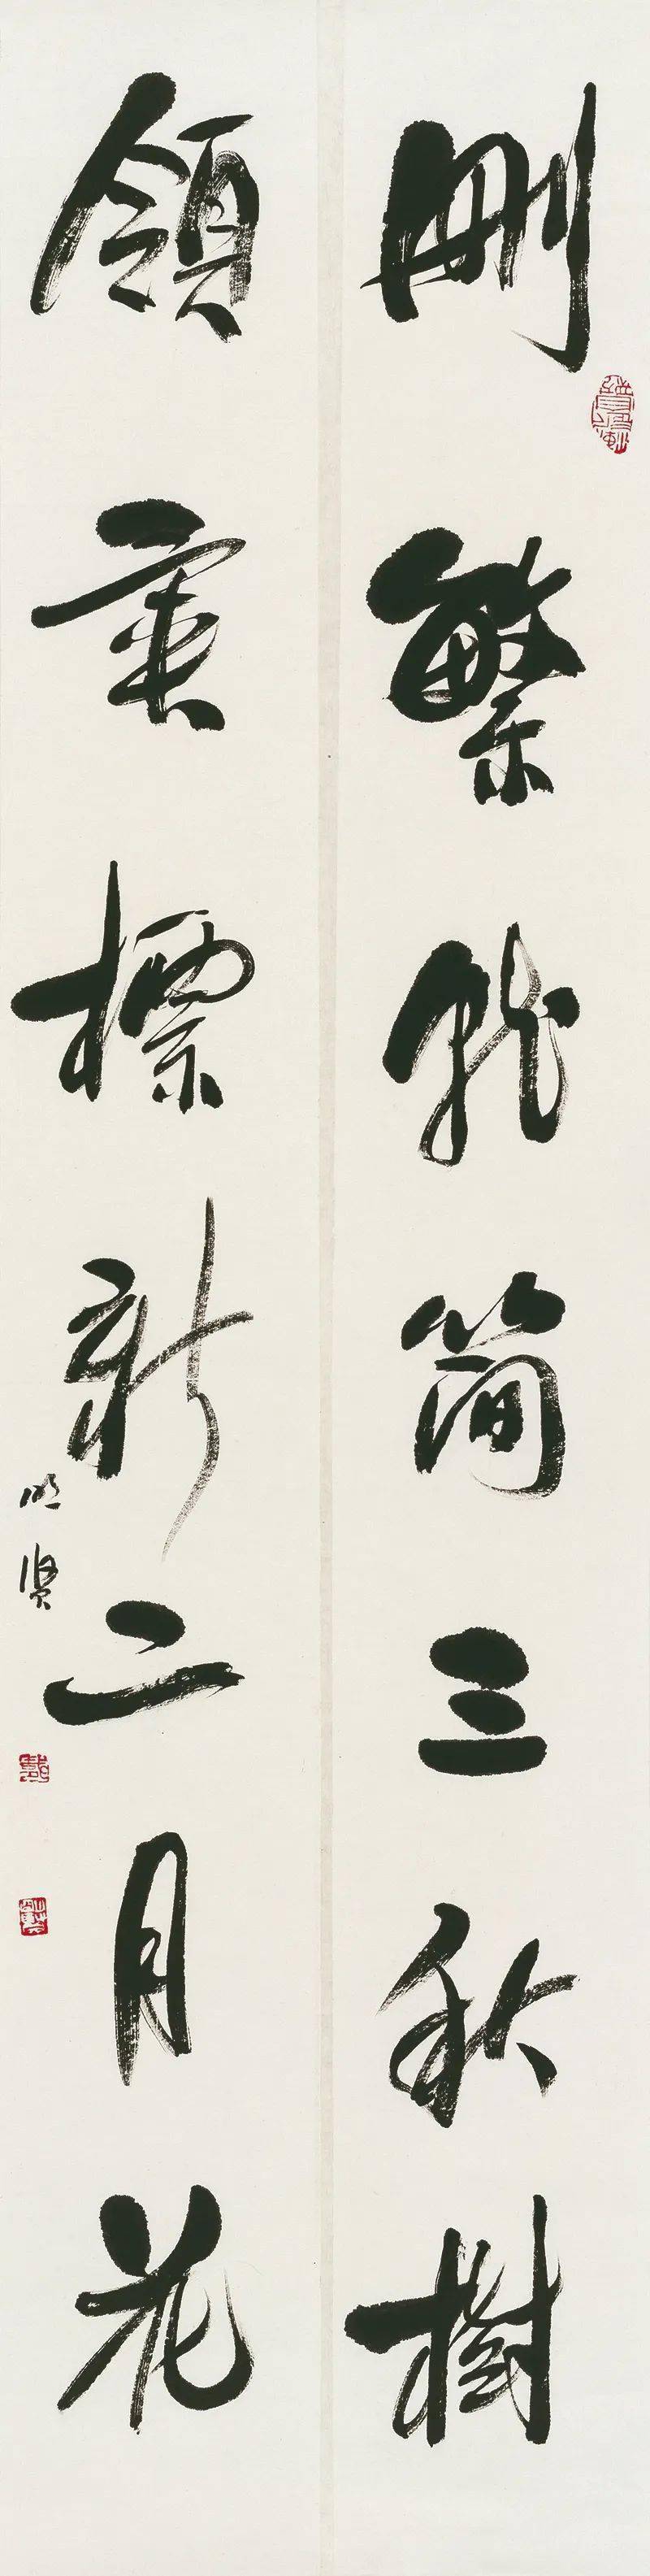 刪繁就简三秋樹
領異標新二月花
明贤